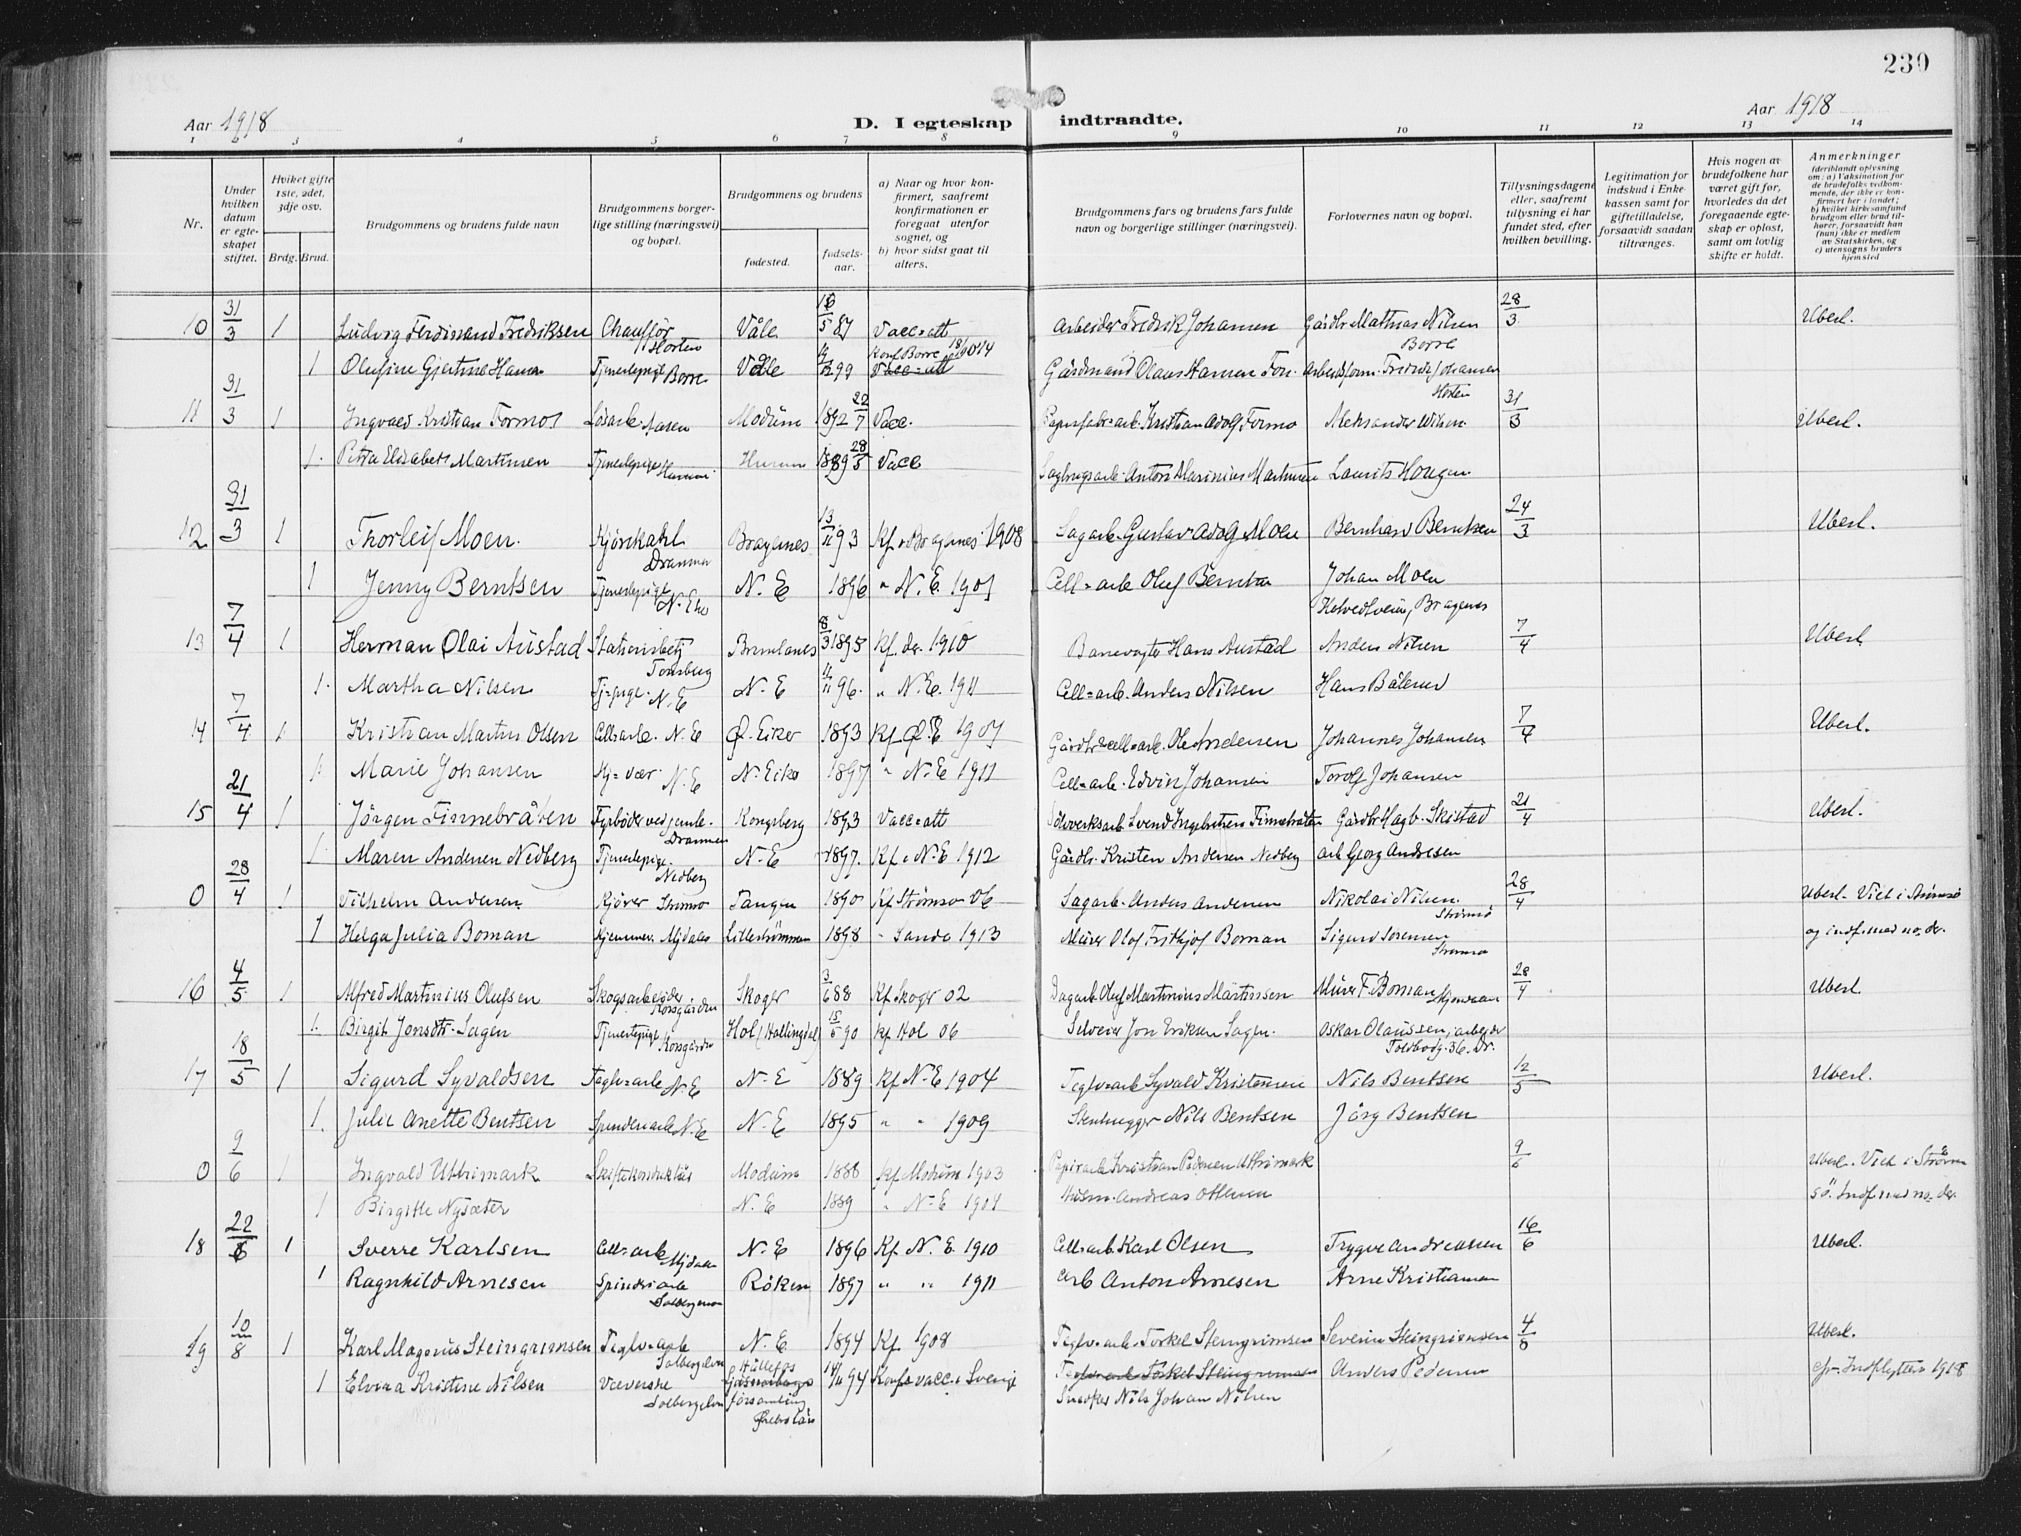 239
Aar 1918
D. I egteskap indtraadte.
Aar 1918
1 2 3 4 5 6 7 8 9 10 11 12 13 14
Nr.
Under hvilken datum er egteskapet stiftet.
Hvilket gifte 1ste, 2det, 3dje osv.
Brdg. Brud.
Brudgommens og brudens fulde navn
Brudgommens borgerlige stilling (næringsvei) og bopæl.
Brudgommens og brudens
fødested.
fødselsaar.
a) Naar og hvor konfirmert, saafremt konfirmationen er foregaat utenfor sognet, og
b) hvor sidst gaat til alters.
Brudgommens fars og brudens fars fulde navn og borgerlige stillinger (næringsvei).
Forlovernes navn og bopæl.
Tillysningsdagene eller, saafremt tillysning ei har fundet sted, efter hvilken bevilling.
Legitimation for indskud i Enkekassen samt for giftetilladelse, forsaavidt saadan tiltrænges.
Hvis nogen av brudefolkene har været gift før, hvorledes da det foregaaende egteskap er opløst, samt om lovlig skifte er holdt.
Anmerkninger (deriblandt oplysning om: a) Vaksination for de brudefolks vedkommende, der ikke er konfirmert her i landet; b) hvilket kirkesamfund brudgom eller brud tilhører, forsaavidt han (hun) ikke er medlem av Statskirken, og c) utensogns bruders hjemsted
10 31/3 1 Ludvig Ferdinand Fredriksen Chauffør Horten Våle 16/5 87 Vacc=att Arbeider Fredrik Johansen Gårdbr Mathias Nilsen Borre 28/3 Uberl.
1 Olufine Gjertine Hansen Tjenestepige Borre Våle 99 Konf Borre 18/10 1914 Gårdmand Olaus Hansen Fon. Arbeidsform. Fredrik Johansen Horten
11 31/3 1 Ingvald Kristian Formo Løsarb. Åsen Modum 1892 22/7 Vacc. Papirfabr=arb. Kristian Adolf Formo Aleksander Wilsen 31/3 Uberl.
1. Petra Elisabeth Martinsen Tjenestepige Hurum Hurum 1889 28/5 Vacc Sagbrugsarb. Anton Marinius Martinsen Laurits Hougen
12 31/3 1 Thorleif Moen. Kjørekarl Drammen Bragernes 13/11 93 Kf. Bragernes. 1908 Sagarb. Gustav Adolf Moen Bernhard Berntsen 24/3 Uberl.
1 Jenny Berntsen Tjenestepige N. Eker N. E 1896 " N. E. 1907 Cell=arb Oluf Berntsen Johan Moen Helvedtveien, Bragernes
13 7/4 1 Herman Olai Austad Stationsbetj Tønsberg Brunlanes 8/3 1895 Kf. der 1910 Banevogter Hans Austad Anders Nilsen 7/4 Uberl.
1. Martha Nilsen Tj=pige. N. E N. E 96. " N. E. 1911 Cell=arb. Anders Nilsen Hans Bålerud
14 7/4 1 Kristian Martin Olsen Cell=arb. N. E Ø. Eiker 1893 Kf. Ø. E 1907 Gårdbr & cell=arb. Ole Andersen Johannes Johansen 7/4 Uberl.
1. Marie Johansen Hj=vær. N. E N. Eiker 1897 " N. E 1911 Cell=arb. Edvin Johansen Torolf Johansen
15 21/4 1 Jörgen Finnebråten Fyrbøder ved jernb. Drammen Kongsberg 1893 Vacc=att Sølvverksarb Svend Ingebretsen Finnebråten Gårdbr Hagb. Skistad 21/4 Uberl.
1. Maren Andersen Nedberg Tjenestepige. Nedberg N. E 1897. Kf. N. E 1912 Gårdbr. Kristen Andersen Nedberg arb Georg Andresen
0 28/4 1 Vilhelm Andersen Kjører Strømsø Tangen 1890 Kf Strømsø 06 Sagarb. Anders Andersen Nikolai Nilsen. Strømsø 28/4 Uberl. Viet i Strømsø
1 Helga Julia Boman Hjemmev. Mjdalen Lillestrømmen 1898 " Sande 1913 Murer Olof Frithjof Boman Sigurd Sorensen Strømsø og indf. med no. der.
16 4/5 1 Alfred Martinius Olufsen Skogsarbeider Korsgården Skoger 3/6 88 Kf. Skoger 02 Dagarb. Oluf Martinius Martinsen Murer F. Boman 28/4 Uberl.
1. Birgit Jonsdtr. Sagen Tjenestepige Korsgården Hol (Hallingdal) 15/5 90 Kf Hol 06 Selveier Jon Eriksen Sagen. Oskar Olaussen, arbeider Toldbodg. 36. Dr.
17 18/5 1 Sigurd Syvaldsen Teglv=arb N. E N. E 1889 Kf N. E 1904 Teglv=arb Syvald Kristensen Nils Bentsen 12/5 Uberl.
1. Julie Anette Bentsen Spinderiarb N. E N. E 1895 " " 1909 Stenhugger Nils Bentsen Jörg Bentsen
0 9/6 1 Ingvald Uttrimark Skiftekonduktør Modum 1888 Kf Modum 1903 Papirarb Kristian Pedersen Uttrimark 9/6 Uberl. Viet i Strøm
1 Birgitte Nysæter N. E 1889 " N. E 1904 Andreas Ottersen sö. Indf. med no. der.
18 22/6 1 Sverre Karlsen Cell=arb Mjdalen N. E 1896 Kf. N. E. 1910 Cell=arb. Karl Olsen Trygve Andreassen 16/6 Uberl.
1 Ragnhild Arnesen Spinderiarb Solbergmoen Röken 1897 " " 1911 Arb Anton Arnesen Arne Kristiansen
19 10/8 1 Karl Magnus Steingrimsen Teglv=arb Solbergelven N. E 1894 Kf. 1908 Teglv=arb. Torkel Steingrimsen Severin Steingrimsen 4/8 Uberl.
1 Elvira Kristine Nilsen Væverske Solbergelven Hällefors församling Örebro län 14/11 94 Konf & vacc. i Sverige Teglv=arb Torkel Steingrimsen Anders Pedersen
Snedker Nils Johan Nilsen